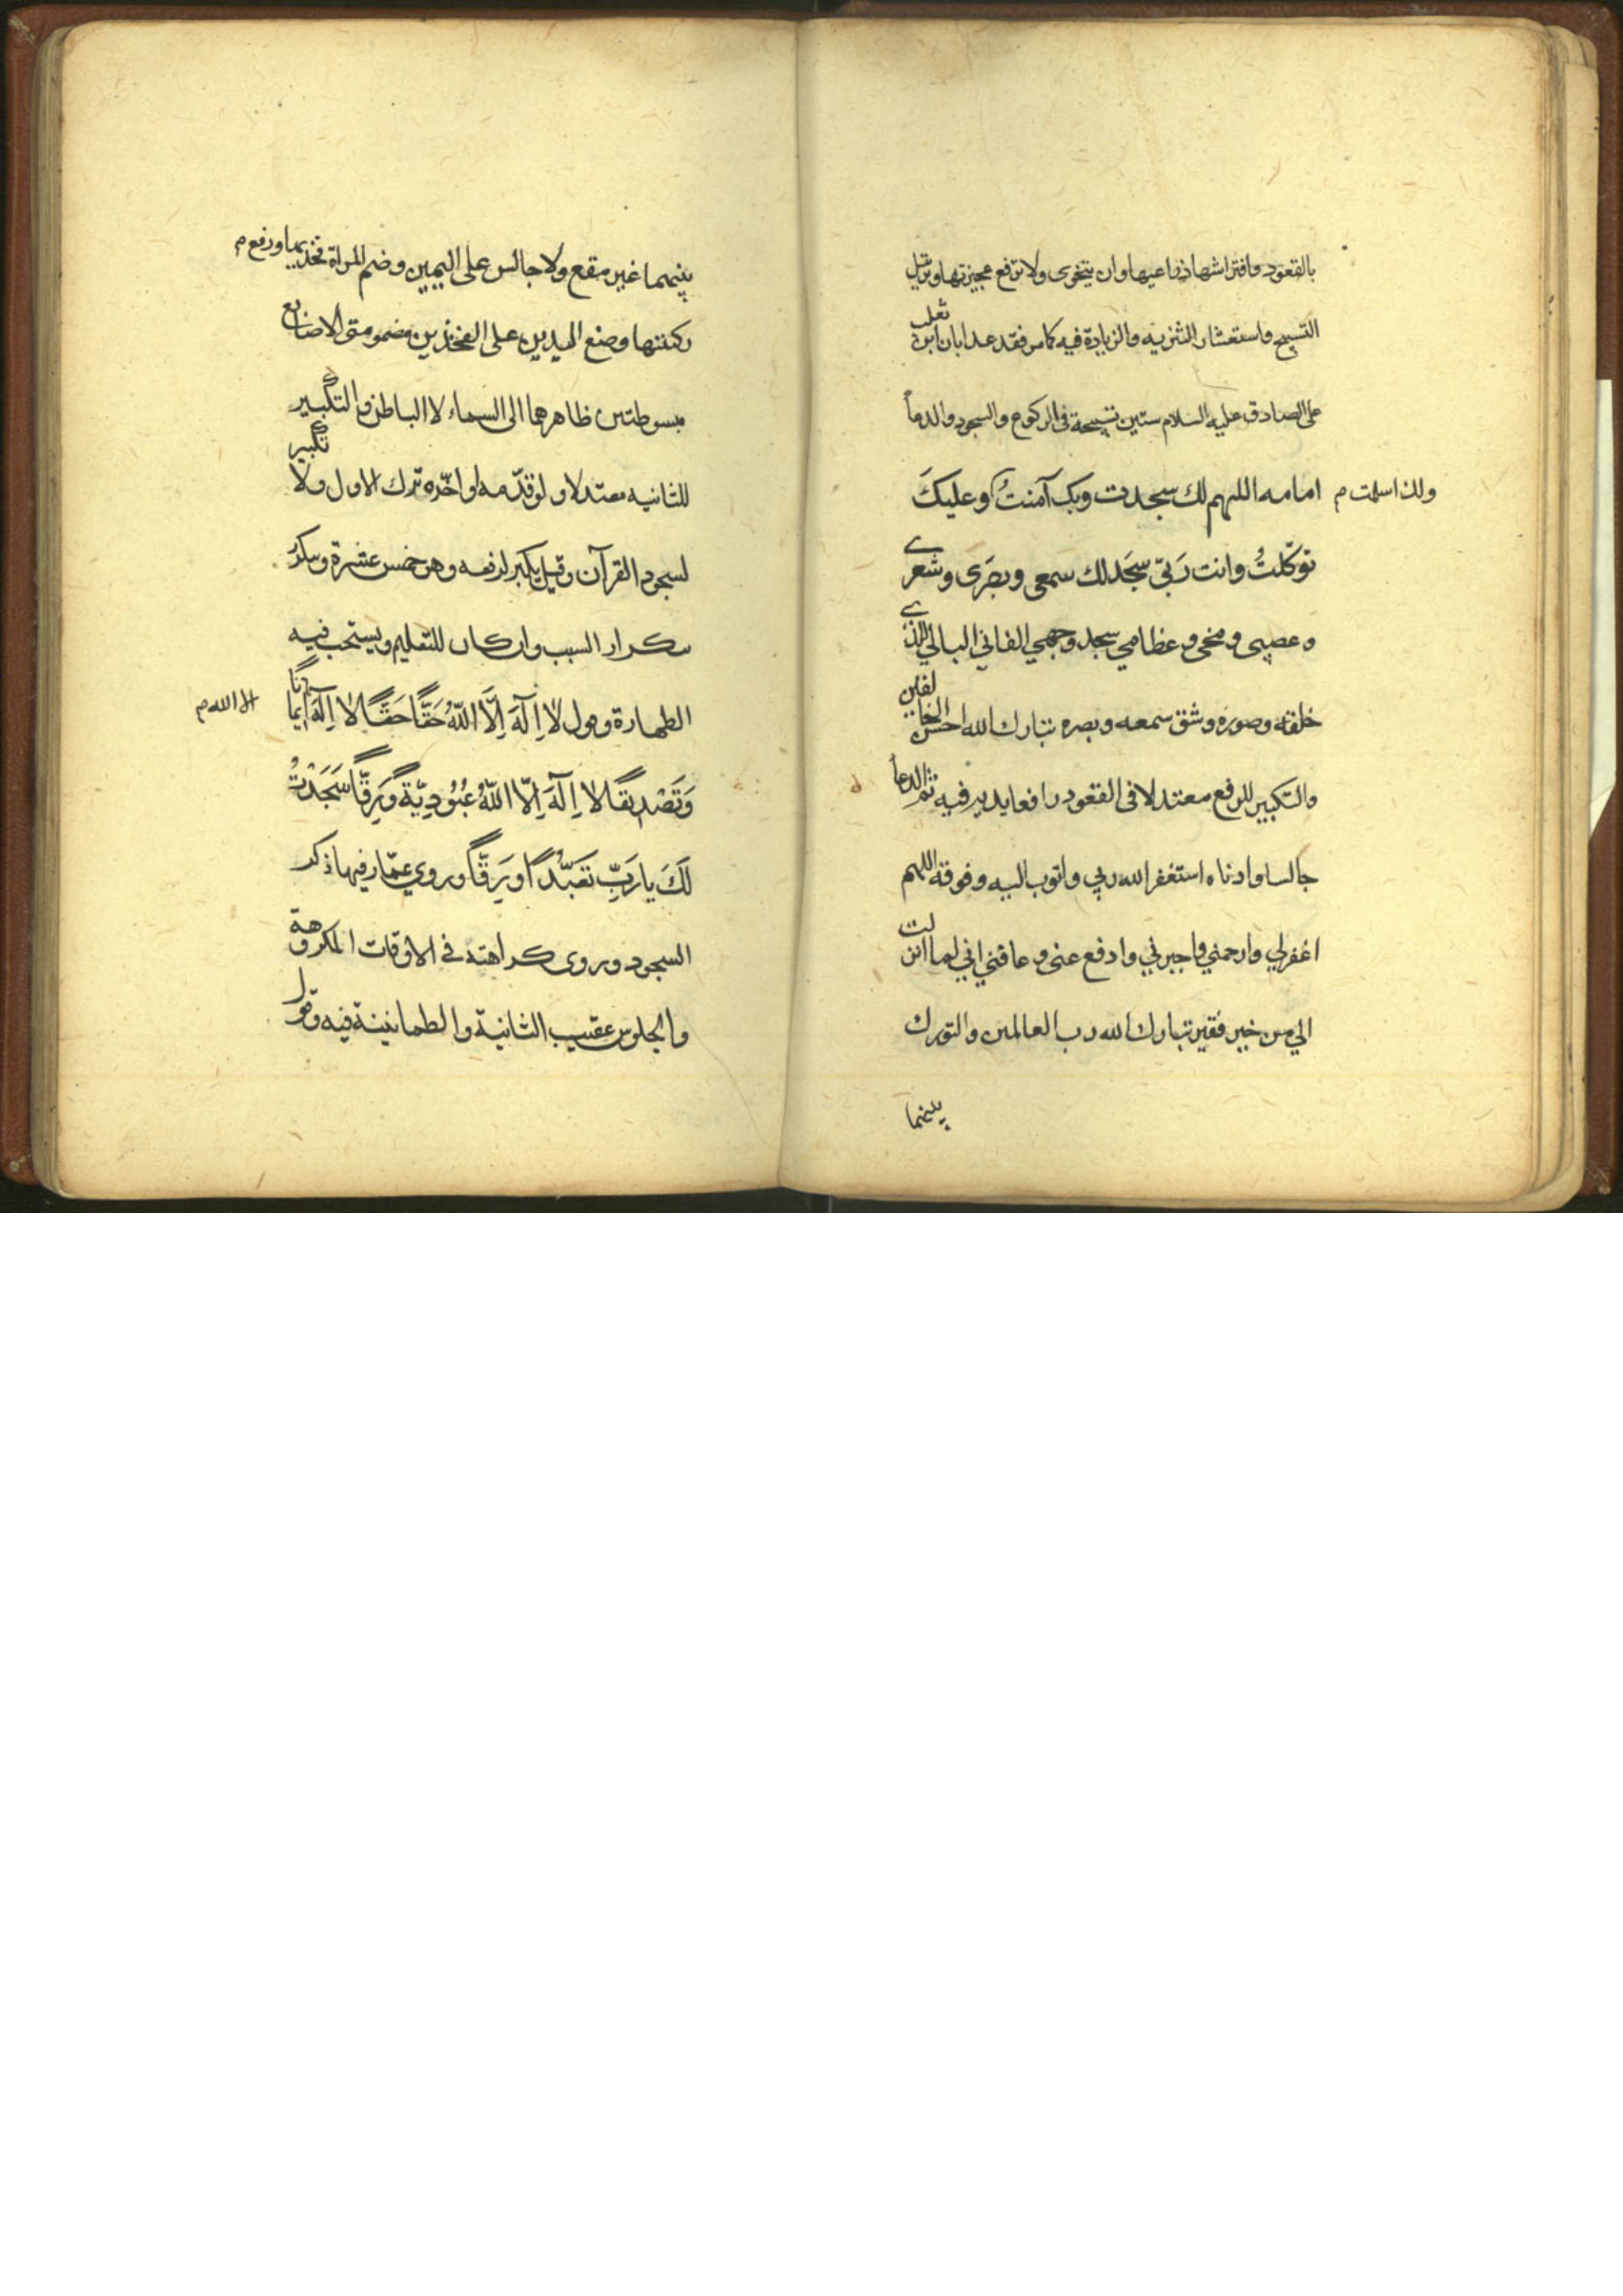 بالقعود وافتراشها ذراعيها وان يتخوى ولا ترفع عجيزتها وترتيل
التسبيح واستشعار التنزيه والزيادة فيه كما مر فقد عد ابان ابن تغلب
على الصادق عليه السلام ستين تسبيحة في الركوع والسجود والدعا
امامه اللهم لك سجدت وبك آمنتُ وعليكَ
ولك اسلمت م
توكّلتُ وانت رَبّي سَجَد لك سمعي وبصَرى وشعري
وعصبى ومخى وعظامي سجد وجهي الفاني البالي للذي
خلقه وصوره وشق سمعه وبصره تبارك الله احسن الخالقين
والتكبير للرفع معتدلا في القعود رافعا يديه فيه ثم الدعا
جالسا وادناه استغفر الله ربي واتوب اليه وفوقه اللهم
اغفر لي وارحمني واجبرني وادفع عنى وعافني اني لما انزلت
الي من خير فقير تبارك الله رب العالمين والتورك
بينهما
بينهما غير مقع ولا جالس على اليمين وضم المراة فخذيها ورفع م
ركبتها وضع اليدين على الفخذين مضمومتى الاصابع
مبسوطتين ظاهرهما الى السماء لا الباطن والتكبير
للثانيه معتدلا ولو قدّمه او اخّره ترك الاول ولا تكبير
لسجود القرآن وقيل يكبر لرفعه وهو خمس عشرة ويتكرر
بتكرار السبب وان كان للتعليم ويستحب فيه
الطهارة وقول لا اِلَهَ اِلَّا اللهُ حَقًّا حَقًّا لا اِلَهَ ايمانًا
الا الله م
وَتَصْدِيقًا لا اِلَهَ اِلّا اللهُ عُبُودِيّةً وَرِقًّا سَجَدْتُ
لَكَ يا رَبِّ تَعَبُّدًا وَرِقًّا وروي عمّار فيها ذكر
السجود وروى كراهته في الاوقات المكروهة
والجلوس عقيب الثانية والطمانينة فيه وقول